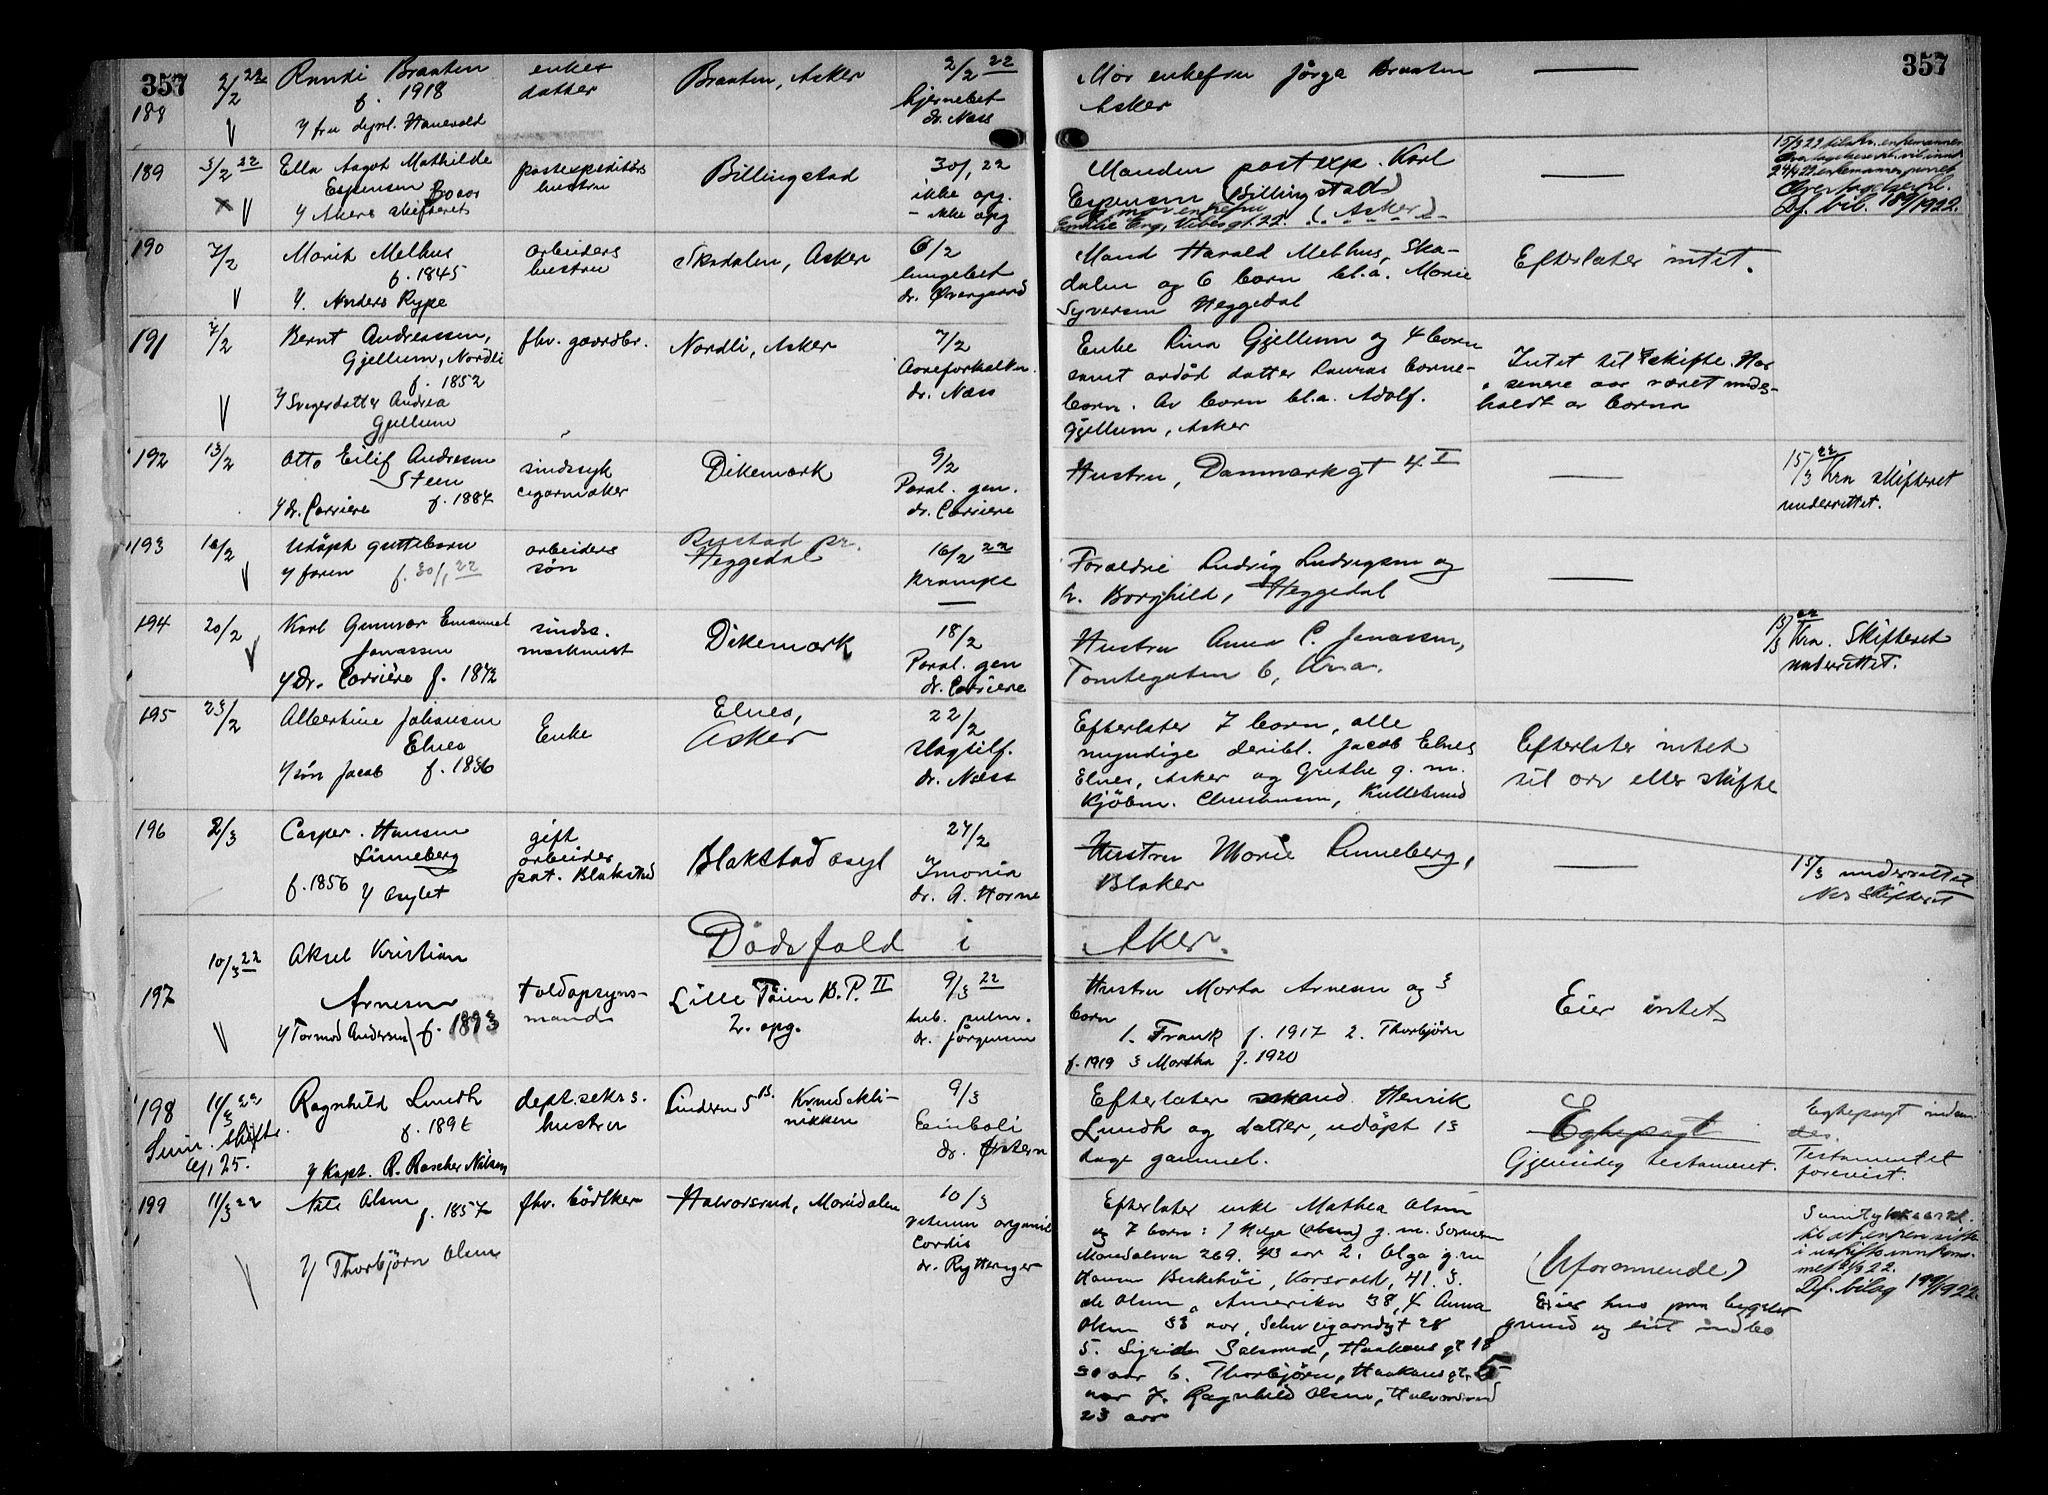 357
357
188
2/2 22
Randi Braaten
f. 1918
v/ fru Hanevold
enkes
datter
Braaten, Asker
2/2 22
hjernebet
dr. Næss
Mor enkefru Jørga Braaten
Asker
189
3/2 22
Ella Aagot Mathilde
Espensen
v/ Akers skifteret
postexpeditørs
hustru
Billingstad
30/1 22
ikke opg.
- ikke opg
Manden postexp. Karl
Espensen (Billingstad)
(Asker)
Df. bil. 189/1922.
190
7/2
Marit Melhus
f. 1845
v/ Anders Rype
arbeiders
hustru
Skadalen, Asker
6/2
lungebet
dr. Øvergaard
Mand Harald Melhus, Ska-
dalen og 6 barn bl.a. Marie
Syversen Heggedal
Efterlater intet.
191
7/2
Bernt Andreassen,
Gjellum, Nordli
f. 1852
v/ Svigerdatter Andrea
Gjellum
fhv. gaardbr.
Nordli, Asker
7/2
Aareforkalkn.
dr. Næss
Enke Lina Gjellum og 4 barn
samt avdød datter Lauras barne-
barn. Av barn bl.a. Adolf.
Gjellum, Asker
Intet til skifte. Har
senere aar været under-
holdt av barna
192
13/2
Otto Eilif Andresen
Steen
v/ dr. Carriere f. 1884
sindssyk
cigarmaker
Dikemark
9/2
Paral. gen.
dr. Carriere
Hustru, Danmarksgt 4 I
15/3 22 Kra skifteret
underrettet.
193
16/2
Udøpt guttebarn
v/ faren f. 30/1 22
arbeiders
søn
Bustad pr.
Heggedal
16/2 22
Krampe
Forældre Ludvig Ludvigsen og
h. Borghild, Heggedal
194
20/2
Karl Gunnar Emanuel
Jonassen
v/ Dr. Carriere f. 1872
sindss.
maskinist
Dikemark
18/2
Paral. gen
dr. Carriere
Hustru Anna C. Jonassen,
Tomtegaten 6, Kra.
15/3 22 Kra. Skifteret
underrettet.
195
23/2
Albertine Johansen
Elnes
v/ søn Jacob f. 1836
Enke
Elnes,
Asker
22/2
Slagtilf.
dr. Næss
Efterlater 7 barn, alle
myndige deribl. Jacob Elnes
Elnes, Asker og Grethe g. m.
Kjøbm. Christensen, Kullebund
Efterlater intet
til arv eller skifte
196
2/3
Casper Hansen
Linneberg
f. 1856 v/ Asylet
gift
arbeider
pat. Blakstad
Blakstad asyl
27/2
dr. A. Horne
Hustru Marie Linneberg,
Blaker
15/3 underrettet
Nes Skifteret
Dødsfald i Aker.
197
10/3 22
Aksel Kristian
Arnesen
v/ Tormod Andersen) f. 1893
toldopsyns-
mand
Lille Tøien B.P. II
2. opg.
9/3 22
tub. pulm.
dr. Jørgensen
Hustru Marta Arnesen og 3
barn
1. Frank f. 1917 2. Thorbjørn
f. 1919 3 Martha f. 1920
Eier intet
198
11/3 22
Ragnhild Lundh
v/ Kapt. R. Roscher Nielsen
dept. sekr s.
hustru
Lindern 5 B.
Kvindekli-
nikken
9/3
Emboli
dr. Østern
Efterlater mand Henrik
Lundh og datter, udøpt 13
dage gammel.
Egtepagt
Gjensidig testament.
Testamentet
forevist.
199
11/3 22
Nils Olsen
f. 1857
v/ Thorbjørn Olsen
fhv. bødtker
Halvorsrud, Maridalen
10/3
vitium organic
Cordis
dr. Rytterager
Efterlater enke Mathea Olsen
og 7 barn: 1 Helga (Olsen) g. m.
Maridalsvn 269. 43 aar 2. Olga g. m
Korsvold, 41. 3.
Olsen, Amerika 38, 4 Anna
Olsen 33 aar, Schweigaardsgt 28
5. Sigrid Haakons gt 18
30 aar 6. Thorbjørn, Haakonsgt. 5
aar 7. Ragnhild Olsen, Halvorsrud
23 aar
(Uformuende)
Eier hus paa bygslet
grund og litt indbo
Df. bilag 199/1922.